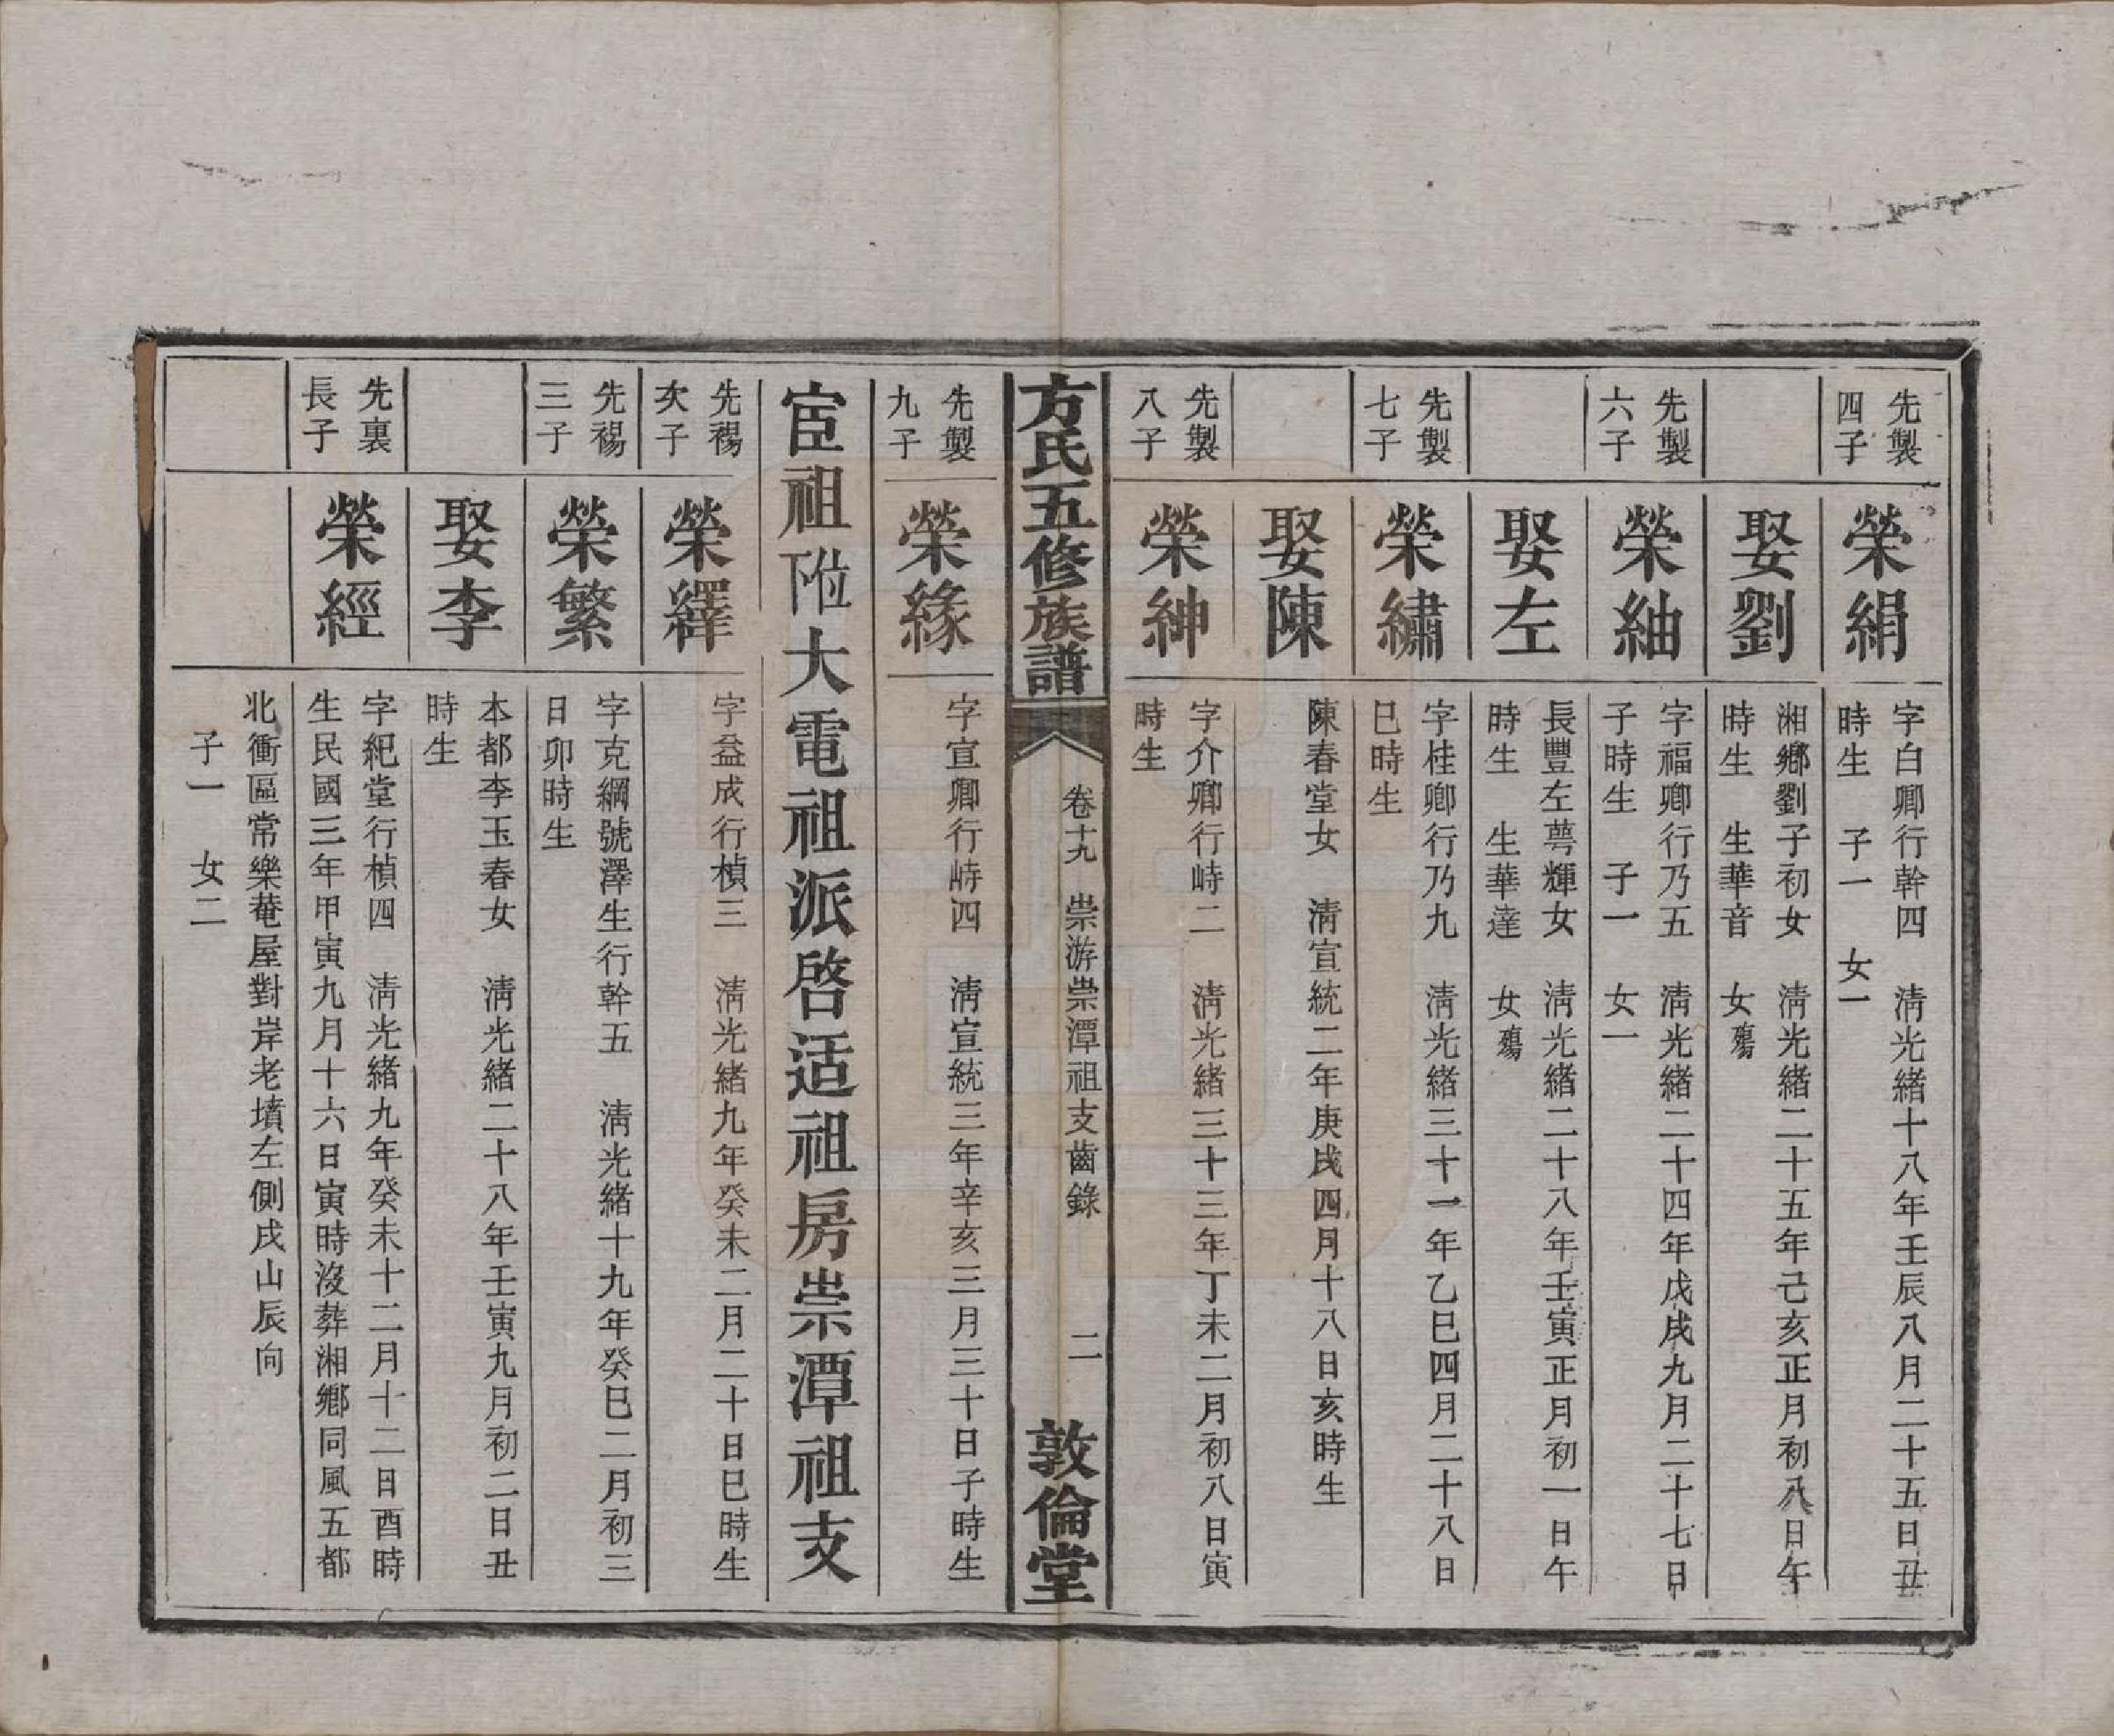 先製
四子
榮絹
字白卿行幹四　淸光緒十八年壬辰八月二十五日丑
時生　子一　女一
娶劉
湘鄉劉子初女　淸光緒二十五年己亥正月初八日午
時生　生華音　女殤
先製
六子
榮紬
字福卿行乃五　淸光緒二十四年戊戌九月二十七日
子時生　子一　女一
娶左
長豐左萼輝女　淸光緒二十八年壬寅正月初一日午
時生　生華達　女殤
先製
七子
榮繡
字桂卿行乃九　淸光緒三十一年乙巳四月二十八日
巳時生
娶陳
陳春堂女　淸宣統二年庚戌四月十八日亥時生
先製
八子
榮紳
字介卿行峙二　淸光緒三十三年丁未二月初八日寅
時生
方氏五修族譜
卷十九　崇游崇潭祖支齒錄
二
敦倫堂
先製
九子
榮緣
字宣卿行峙四　淸宣統三年辛亥三月三十日子時生
宦祖附大電祖派啓适祖房崇潭祖支
先裼
次子
榮繹
字益成行楨三　淸光緒九年癸未二月二十日巳時生
先裼
三子
榮繁
字克綱號澤生行幹五　淸光緒十九年癸巳二月初三
日卯時生
娶李
本都李玉春女　淸光緒二十八年壬寅九月初二日丑
時生
先裏
長子
榮經
字紀堂行楨四　淸光緒九年癸未十二月十二日酉時
生民國三年甲寅九月十六日寅時沒葬湘鄉同風五都
北衝區常樂菴屋對岸老墳左側戌山辰向
子一　女二